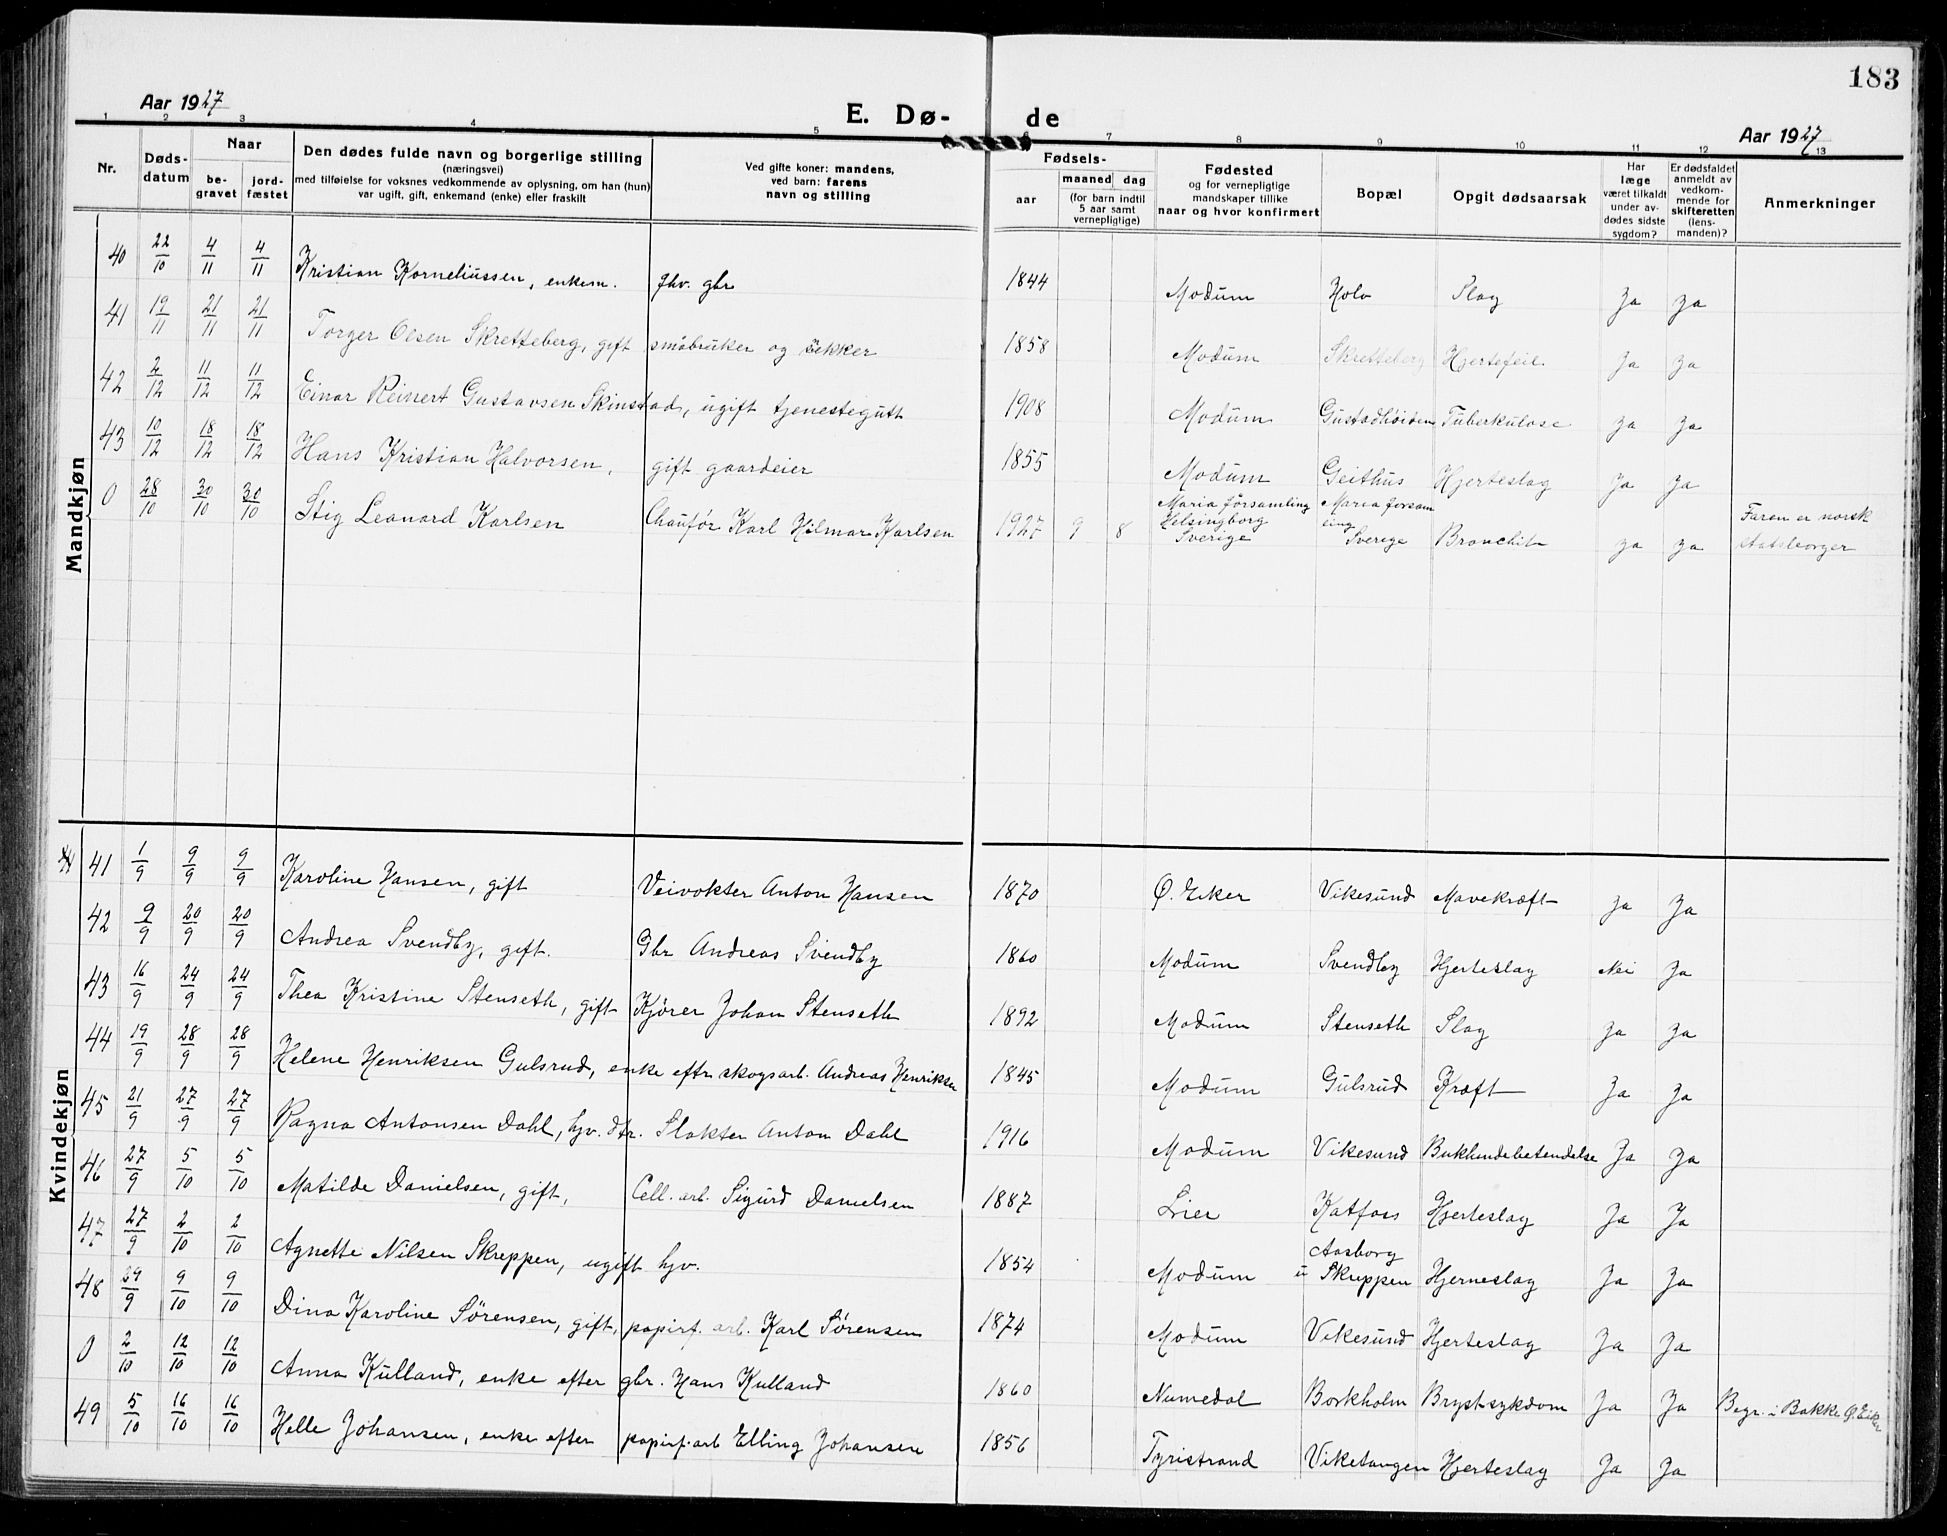 183
Aar 1927
E. Dø-
de
Aar 1927
1 2 3 4 5 6 7 8 9 10 11 12 13
Nr. | Døds-datum | Naar be-gravet | jord-fæstet | Den dødes fulde navn og borgerlige stilling (næringsvei) med tilføielse for voksnes vedkommende av oplysning, om han (hun) var ugift, gift, enkemand (enke) eller fraskilt | Ved gifte koner: mandens, ved barn: farens navn og stilling | Fødsels- aar | maaned | dag (for barn indtil 5 aar samt vernepligtige) | Fødested og for vernepligtige mandskaper tillike naar og hvor konfirmert | Bopæl | Opgit dødsaarsak | Har læge været tilkaldt under av-dødes sidste sygdom? | Er dødsfaldet anmeldt av vedkom-mende for skifteretten (lens-manden)? | Anmerkninger
Mandkjøn
40 22/10 4/11 4/11 Kristian Korneliussen, enkem. fhv. gbr 1844 Modum Holv Slag Ja Ja
41 19/11 21/11 21/11 Torger Olsen Skretteberg, gift småbruker og sekker 1858 Modum Skretteberg Hjertefeil Ja Ja
42 2/12 11/12 11/12 Einar Reinert Gustavsen Skinstad, ugift tjenestegutt 1908 Modum Gustadhøiden Tuberkulose Ja Ja
43 10/12 18/12 18/12 Hans Kristian Halvorsen, gift gaardeier 1855 Modum Geithus Hjerteslag Ja Ja
0 28/10 30/10 30/10 Stig Leonard Karlsen Chaufør Karl Hilmar Karlsen 1927 9 8 Maria församling Helsingborg Sverige Maria forsamling Sverige Bronchit Ja Ja Faren er norsk statsborger
Kvindekjøn
41 1/9 9/9 9/9 Karoline Hansen, gift Veivokter Anton Hansen 1870 Ø. Eker Vikesund Mavekræft Ja Ja
42 9/9 20/9 20/9 Andrea Svendby, gift. Gbr Andreas Svendby 1860 Modum Svendby Hjerteslag Nei Ja
43 16/9 24/9 24/9 Thea Kristine Stenseth, gift Kjører Johan Stenseth 1892 Modum Stenseth Slag Ja Ja
44 19/9 28/9 28/9 Helene Henriksen Gulsrud, enke eftr skogsarb. Andreas Henriksen 1845 Modum Gulsrud Kræft Ja Ja
45 21/9 27/9 27/9 Ragna Antonsen Dahl, hjv. dtr. Slakter Anton Dahl 1916 Modum Vikesund Bukhindebetendelse Ja Ja
46 27/9 5/10 5/10 Matilde Danielsen, gift, Cell. arb. Sigurd Danielsen 1887 Lier Katfoss Hjerteslag Ja Ja
47 27/9 2/10 2/10 Agnette Nilsen Skreppen, ugift hjv. 1854 Modum Aasborg u Skreppen Hjerneslag Ja Ja
48 29/9 9/10 9/10 Dina Karoline Sørensen, gift, papirf. arb. Karl Sørensen 1874 Modum Vikesund Hjerteslag Ja Ja
0 2/10 12/10 12/10 Anna Kulland, enke efter gbr. Hans Kulland 1860 Numedal Borkholm Brystsykdom Ja Ja Begr. i Bakke Ø. Eiker
49 5/10 16/10 16/10 Helle Johansen, enke efter papirf. arb Elling Johansen 1856 Tyristrand Viketangen Hjerteslag Ja Ja